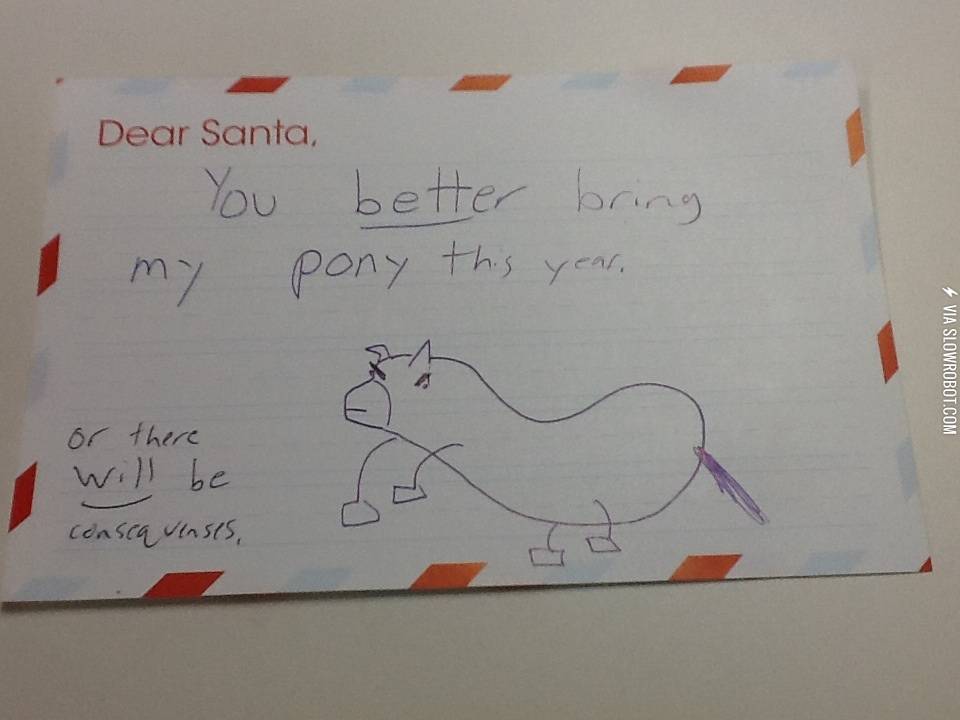 Dear Santa,
You better bring
my pony this year.
or there
will be
consequenses.
VIA SLOWROBOT.COM